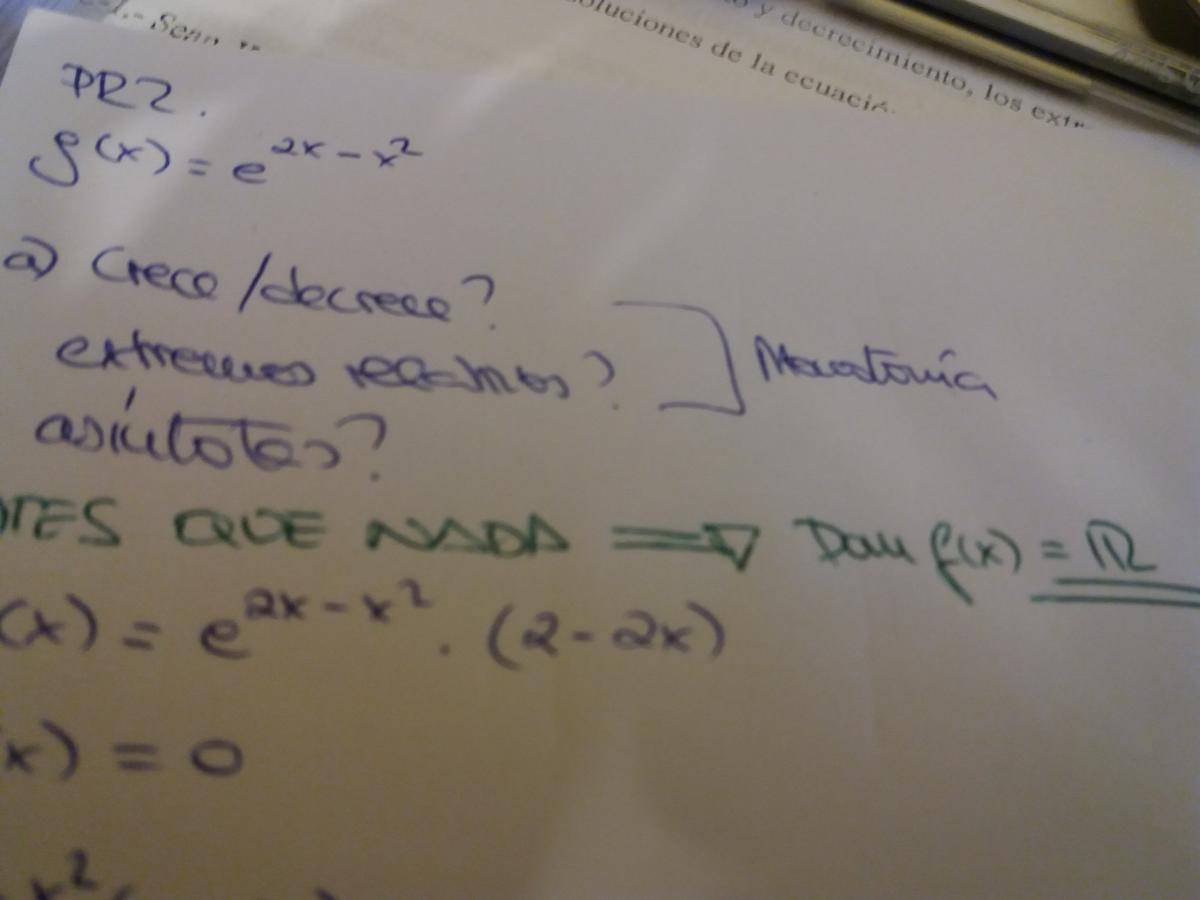 y decrecimiento, los
oluciones de la
PR2.
f(x) = e^{2x - x^2}
a) Crece / decrece?
extremos relativos?
Monotonía
asíntotas?
NTES QUE NADA ⟹ Dom f(x) = ℝ
(x) = e^{2x - x^2} · (2 - 2x)
x) = 0